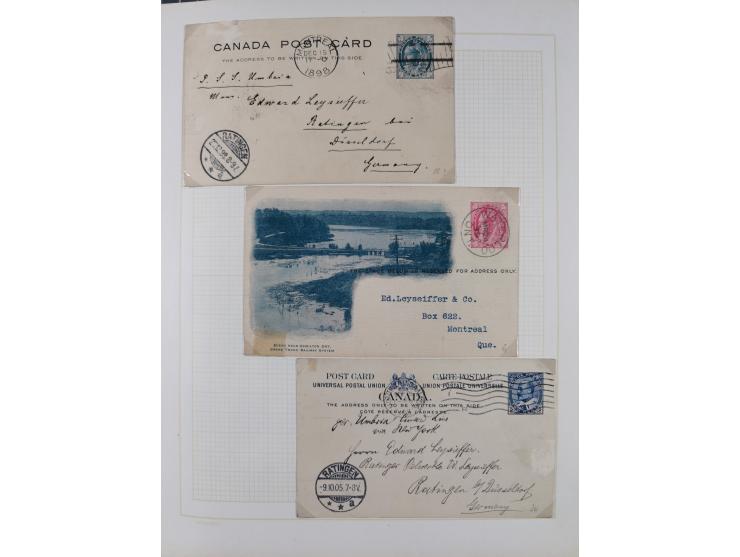 CANADA POST CARD
THE ADDRESS TO BE WRITTEN ON THIS SIDE.
MONTREAL
DEC 15
1898
P. S. S. Umbria
Edward Leyseiffer
Ratingen bei
Düsseldorf
Germany.
RATINGEN
THE SPACE BELOW IS RESERVED FOR ADDRESS ONLY.
Ed. Leyseiffer & Co.
Box 622.
Montreal
Que.
SCENE NEAR HAMILTON ONT.
GRAND TRUNK RAILWAY SYSTEM
POST CARD CARTE POSTALE
UNIVERSAL POSTAL UNION UNION POSTALE UNIVERSELLE
CANADA.
THE ADDRESS ONLY TO BE WRITTEN ON THIS SIDE.
COTE RÉSERVÉ À L'ADRESSE
per Umbria Cunard Line
via New York
Herrn Edward Leyseiffer
Ratingen
Ratingen b/Düsseldorf
Germany
RATINGEN
-9.10.05.7-8V.
a